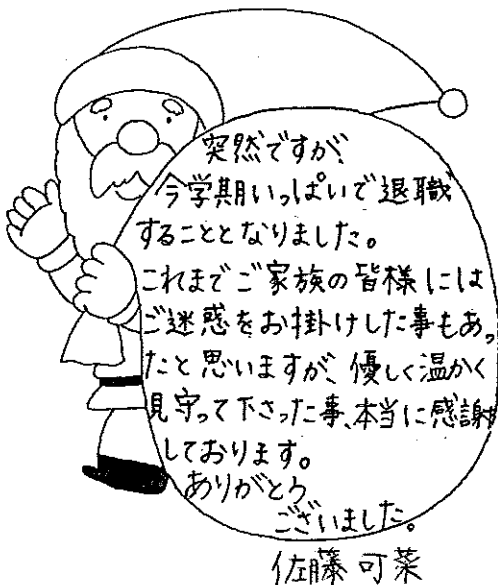 突然ですが、
今学期いっぱいで退職
することとなりました。
これまでご家族の皆様には
ご迷惑をお掛けした事もあっ
たと思いますが、優しく温かく
見守って下さった事、本当に感謝
しております。
ありがとう
ございました。
佐藤可菜